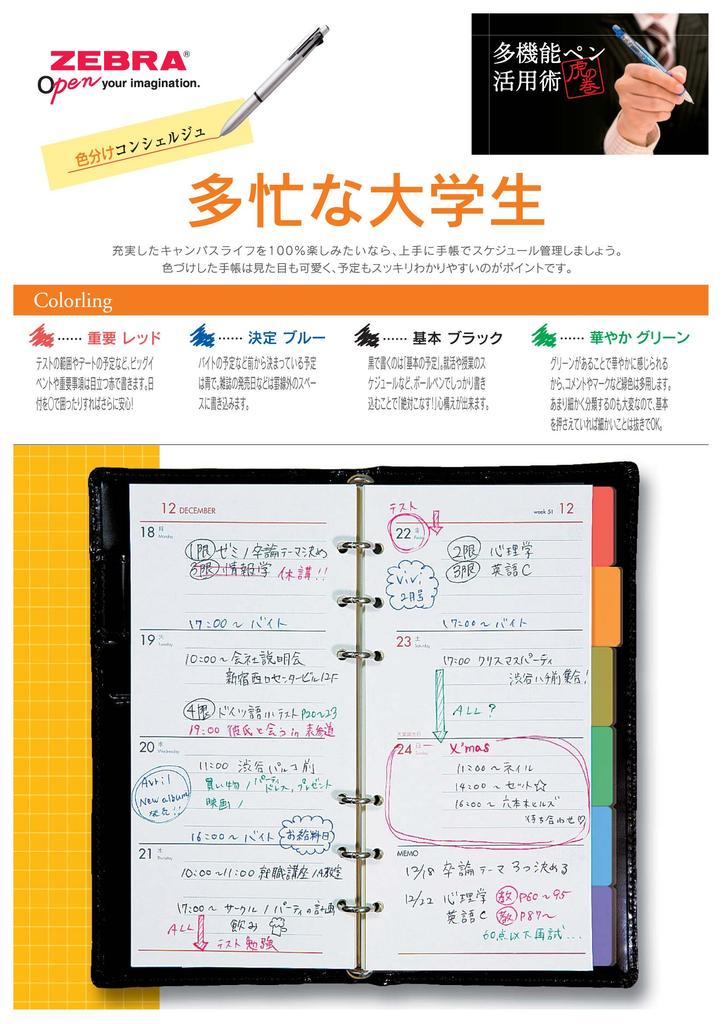 ZEBRA®
Open your imagination.
多機能ペン
活用術 虎の巻
色分けコンシェルジュ
多忙な大学生
充実したキャンパスライフを100%楽しみたいなら、上手に手帳でスケジュール管理しましょう。
色づけした手帳は見た目も可愛く、予定もスッキリわかりやすいのがポイントです。
Colorling
…… 重要 レッド
テストの範囲やデートの予定など、ビッグイ
ベントや重要事項は目立つ赤で書きます。日
付を〇で囲ったりすればさらに安心!
…… 決定 ブルー
バイトの予定など前から決まっている予定
は青で。雑誌の発売日などは罫線外のスペー
スに書き込みます。
…… 基本 ブラック
黒で書くのは「基本の予定」。就活や授業のス
ケジュールなど、ボールペンでしっかり書き
込むことで「絶対こなす!」心構えが出来ます。
…… 華やか グリーン
グリーンがあることで華やかに感じられる
から、コメントやマークなど緑色は多用します。
あまり細かく分類するのも大変なので、基本
を押さえていれば細かいことは抜きでOK。
12 DECEMBER
18 月
Monday
1限 ゼミ / 卒論テーマ決め
3限 情報学 休講!!
17:00 ~ バイト
19 火
Tuesday
10:00~ 会社説明会
新宿西口センタービル12F
4限 ドイツ語 小テスト P20~23
19:00 彼氏と会う in 表参道
20 水
Wednesday
11:00 渋谷パルコ前
買い物 / パーティドレス、プレゼント
映画 /
Avril
New album
発売!!
16:00~ バイト お給料日
21 木
Thursday
10:00~11:00 就職講座 / A教室
17:00~ サークル / パーティの計画
飲み
ALL
テスト勉強
week 51 12
テスト
22 金
Friday
2限 心理学
3限 英語C
ViVi
2月号
17:00~ バイト
23 土
Saturday
17:00 クリスマスパーティ
渋谷ハチ前集合!
ALL?
天皇誕生日
24 日
Sunday
X'mas
11:00~ ネイル
14:00~ セット☆
16:00~ 六本木ヒルズ
待ち合わせ♡
MEMO
12/18 卒論テーマ3つ決める
12/22 心理学 教 P60~95
英語C 教 P87~
60点以下再試…